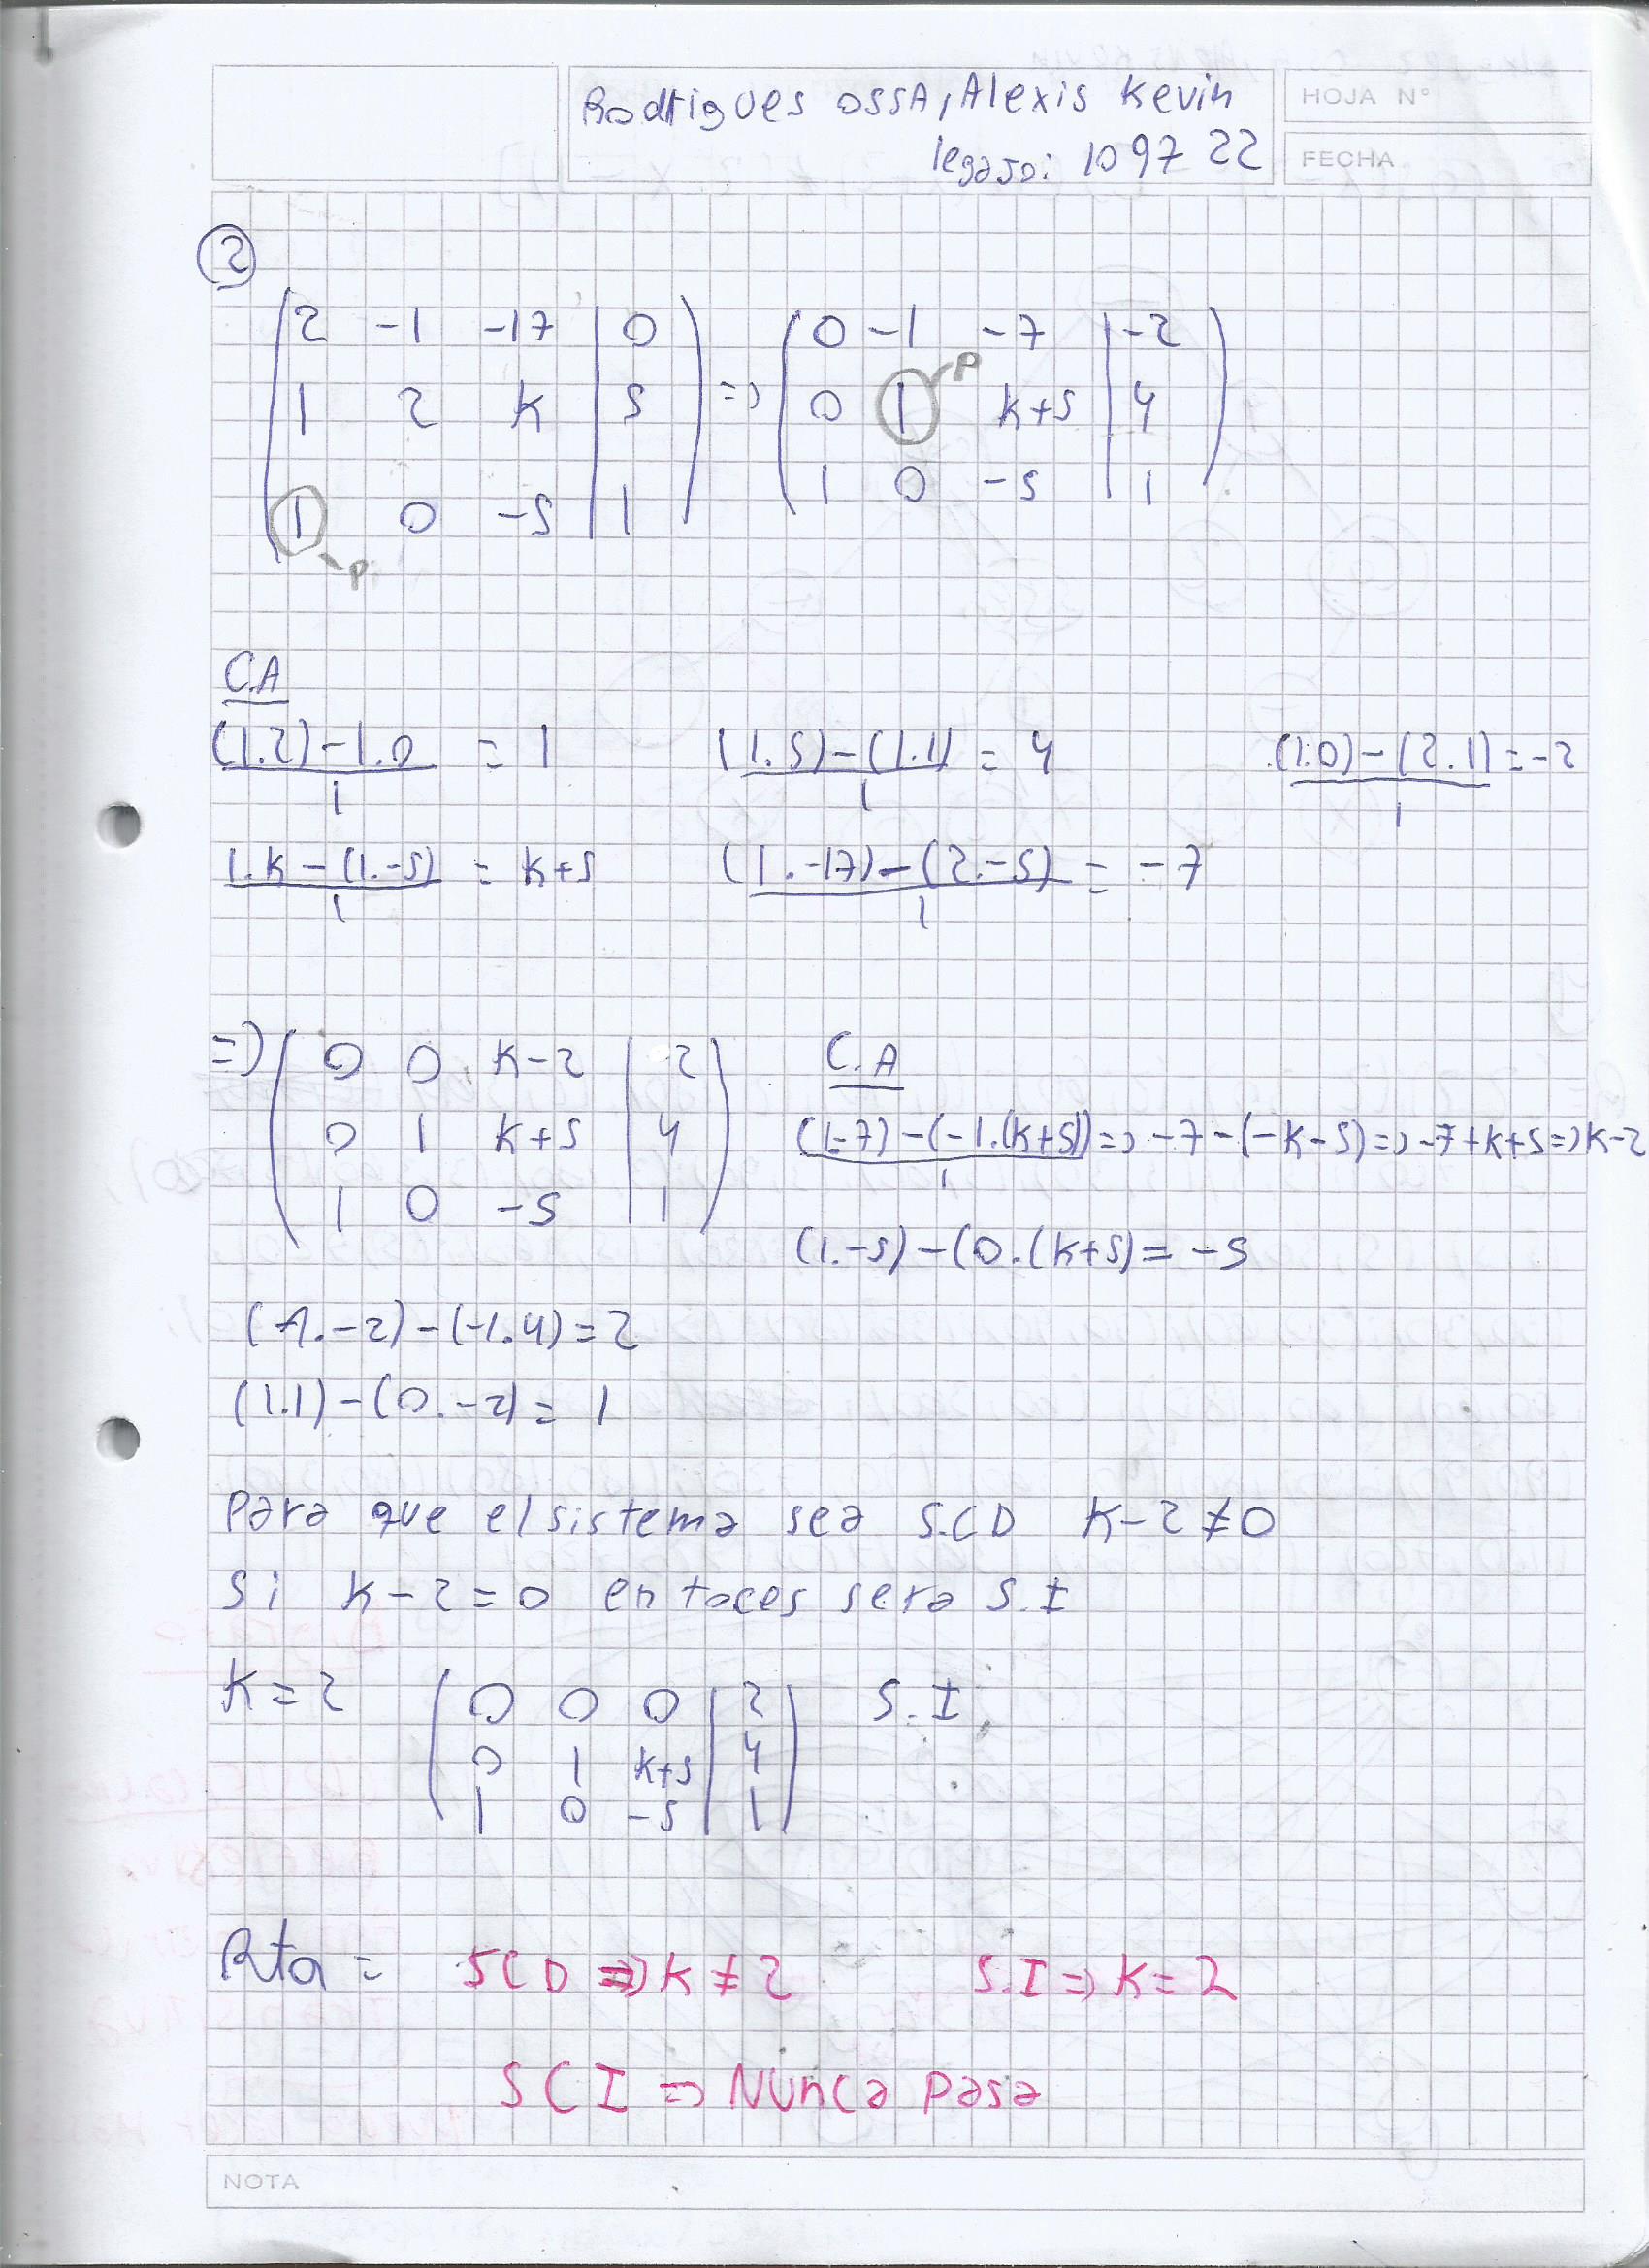 Rodrigues ossA, Alexis Kevin
legajo: 109722
HOJA N°
FECHA
2
2 -1 -17 | 0 => 0 -1 -7 | -2
1 2 k | 5 0 1 k+5 | 4
1 0 -5 | 1 1 0 -5 | 1
P
P
C.A
(1.2)-1.0 / 1 = 1 (1.5)-(1.1) / 1 = 4 (1.0)-(2.1) / 1 = -2
1.k-(1.-5) / 1 = k+5 (1.-17)-(2.-5) / 1 = -7
=> 0 0 k-2 | 2 C.A
0 1 k+5 | 4 (1-7)-(-1.(k+5)) / 1 => -7-(-k-5) => -7+k+5 => k-2
1 0 -5 | 1
(1.-5)-(0.(k+5) = -5
(1.-2)-(-1.4) = 2
(1.1)-(0.-2) = 1
Para que el sistema sea S.CD K-2≠0
Si k-2=0 entoces sera S.I
K=2 0 0 0 | 2 S.I
0 1 k+5 | 4
1 0 -5 | 1
Rta = SCD => K≠2 S.I => K=2
SCI => Nunca pasa
NOTA